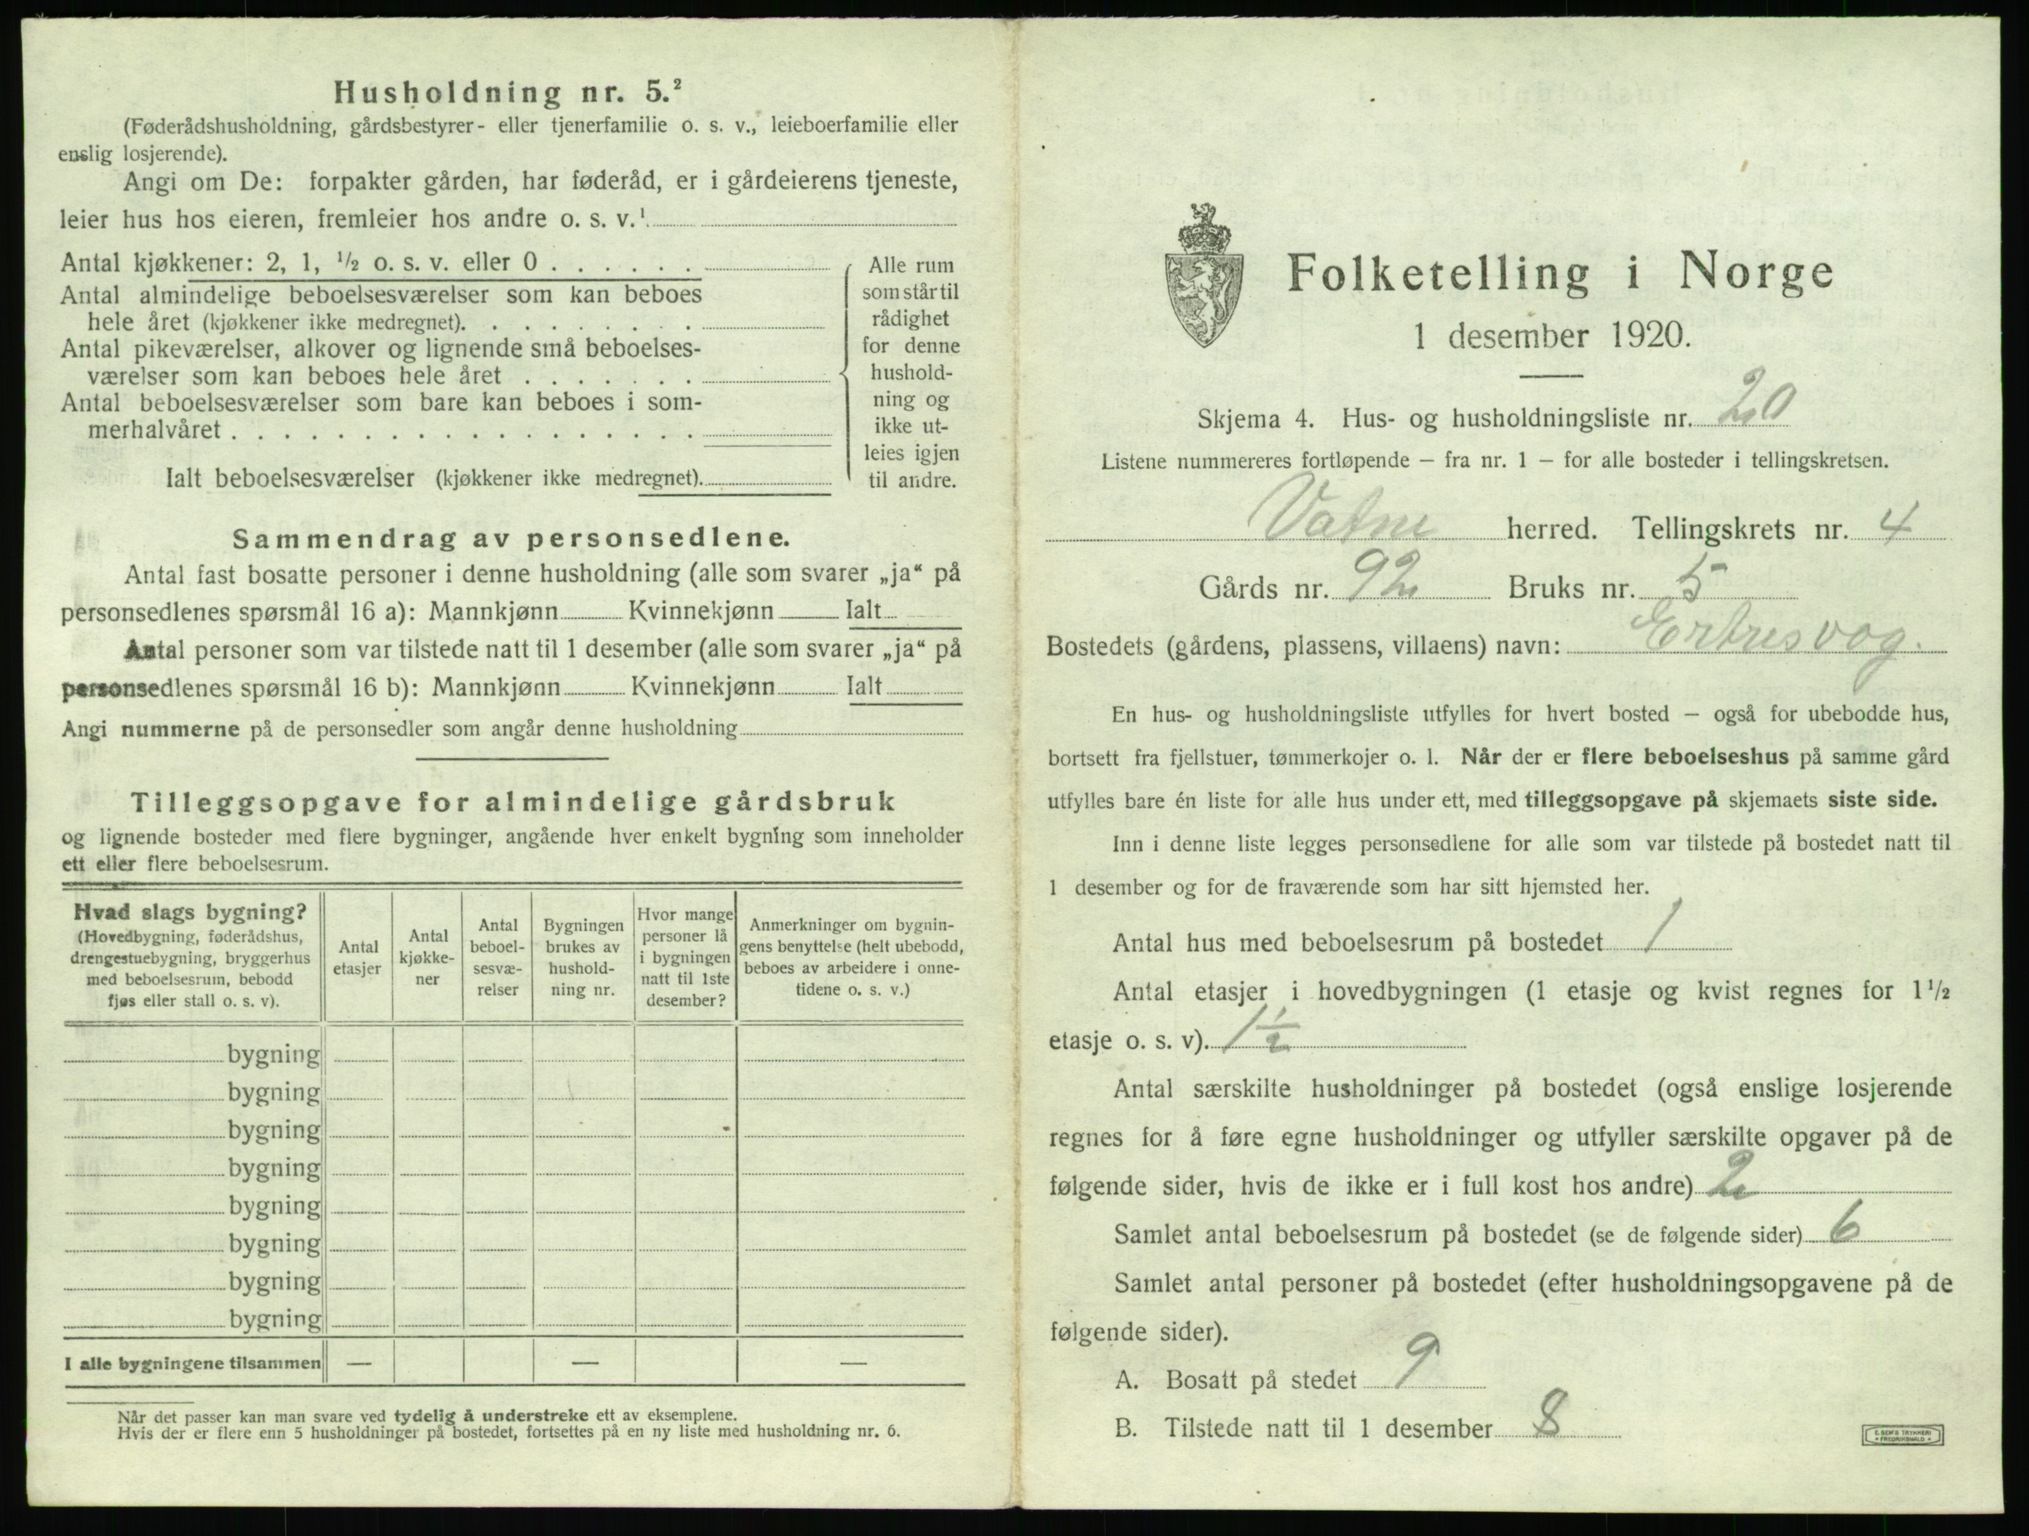 Husholdning nr. 5.²
(Føderådshusholdning, gårdsbestyrer- eller tjenerfamilie o. s. v., leieboerfamilie eller
enslig losjerende).
Angi om De: forpakter gården, har føderåd, er i gårdeierens tjeneste,
leier hus hos eieren, fremleier hos andre o. s. v.¹
Antal kjøkkener: 2, 1, ½ o. s. v. eller 0 . . . . . .
Antal almindelige beboelsesværelser som kan beboes
hele året (kjøkkener ikke medregnet). . . . . . . . .
Antal pikeværelser, alkover og lignende små beboelses-
værelser som kan beboes hele året . . . . . . .
Antal beboelsesværelser som bare kan beboes i som-
merhalvåret . . . . . . . . . . . . . . . . . .
Ialt beboelsesværelser (kjøkkener ikke medregnet).
Alle rum
som står til
rådighet
for denne
hushold-
ning og
ikke ut-
leies igjen
til andre.
Sammendrag av personsedlene.
Antal fast bosatte personer i denne husholdning (alle som svarer „ja“ på
personsedlenes spørsmål 16 a): Mannkjønn Kvinnekjønn Ialt
Antal personer som var tilstede natt til 1 desember (alle som svarer „ja“ på
personsedlenes spørsmål 16 b): Mannkjønn Kvinnekjønn Ialt
Angi nummerne på de personsedler som angår denne husholdning
Tilleggsopgave for almindelige gårdsbruk
og lignende bosteder med flere bygninger, angående hver enkelt bygning som inneholder
ett eller flere beboelsesrum.
Hvad slags bygning?
(Hovedbygning, føderådshus,
drengestuebygning, bryggerhus
med beboelsesrum, bebodd
fjøs eller stall o. s. v).
Antal
etasjer
Antal
kjøkke-
ner
Antal
beboel-
sesvæ-
relser
Bygningen
brukes av
hushold-
ning nr.
Hvor mange
personer lå
i bygningen
natt til 1ste
desember?
Anmerkninger om bygnin-
gens benyttelse (helt ubebodd,
beboes av arbeidere i onne-
tidene o. s. v.)
bygning
bygning
bygning
bygning
bygning
bygning
bygning
bygning
I alle bygningene tilsammen — — —
Når det passer kan man svare ved tydelig å understreke ett av eksemplene.
Hvis der er flere enn 5 husholdninger på bostedet, fortsettes på en ny liste med husholdning nr. 6.
Folketelling i Norge
1 desember 1920.
Skjema 4. Hus- og husholdningsliste nr. 20
Listene nummereres fortløpende – fra nr. 1 – for alle bosteder i tellingskretsen.
Vatne herred. Tellingskrets nr. 4
Gårds nr. 92 Bruks nr. 5
Bostedets (gårdens, plassens, villaens) navn: Ertresvog.
En hus- og husholdningsliste utfylles for hvert bosted – også for ubebodde hus,
bortsett fra fjellstuer, tømmerkojer o. l. Når der er flere beboelseshus på samme gård
utfylles bare én liste for alle hus under ett, med tilleggsopgave på skjemaets siste side.
Inn i denne liste legges personsedlene for alle som var tilstede på bostedet natt til
1 desember og for de fraværende som har sitt hjemsted her.
Antal hus med beboelsesrum på bostedet 1
Antal etasjer i hovedbygningen (1 etasje og kvist regnes for 1½
etasje o. s. v). 1½
Antal særskilte husholdninger på bostedet (også enslige losjerende
regnes for å føre egne husholdninger og utfyller særskilte opgaver på de
følgende sider, hvis de ikke er i full kost hos andre) 2
Samlet antal beboelsesrum på bostedet (se de følgende sider) 6
Samlet antal personer på bostedet (efter husholdningsopgavene på de
følgende sider).
A. Bosatt på stedet 9
B. Tilstede natt til 1 desember 8
E. SEM'S TRYKKERI
FREDRIKSHALD